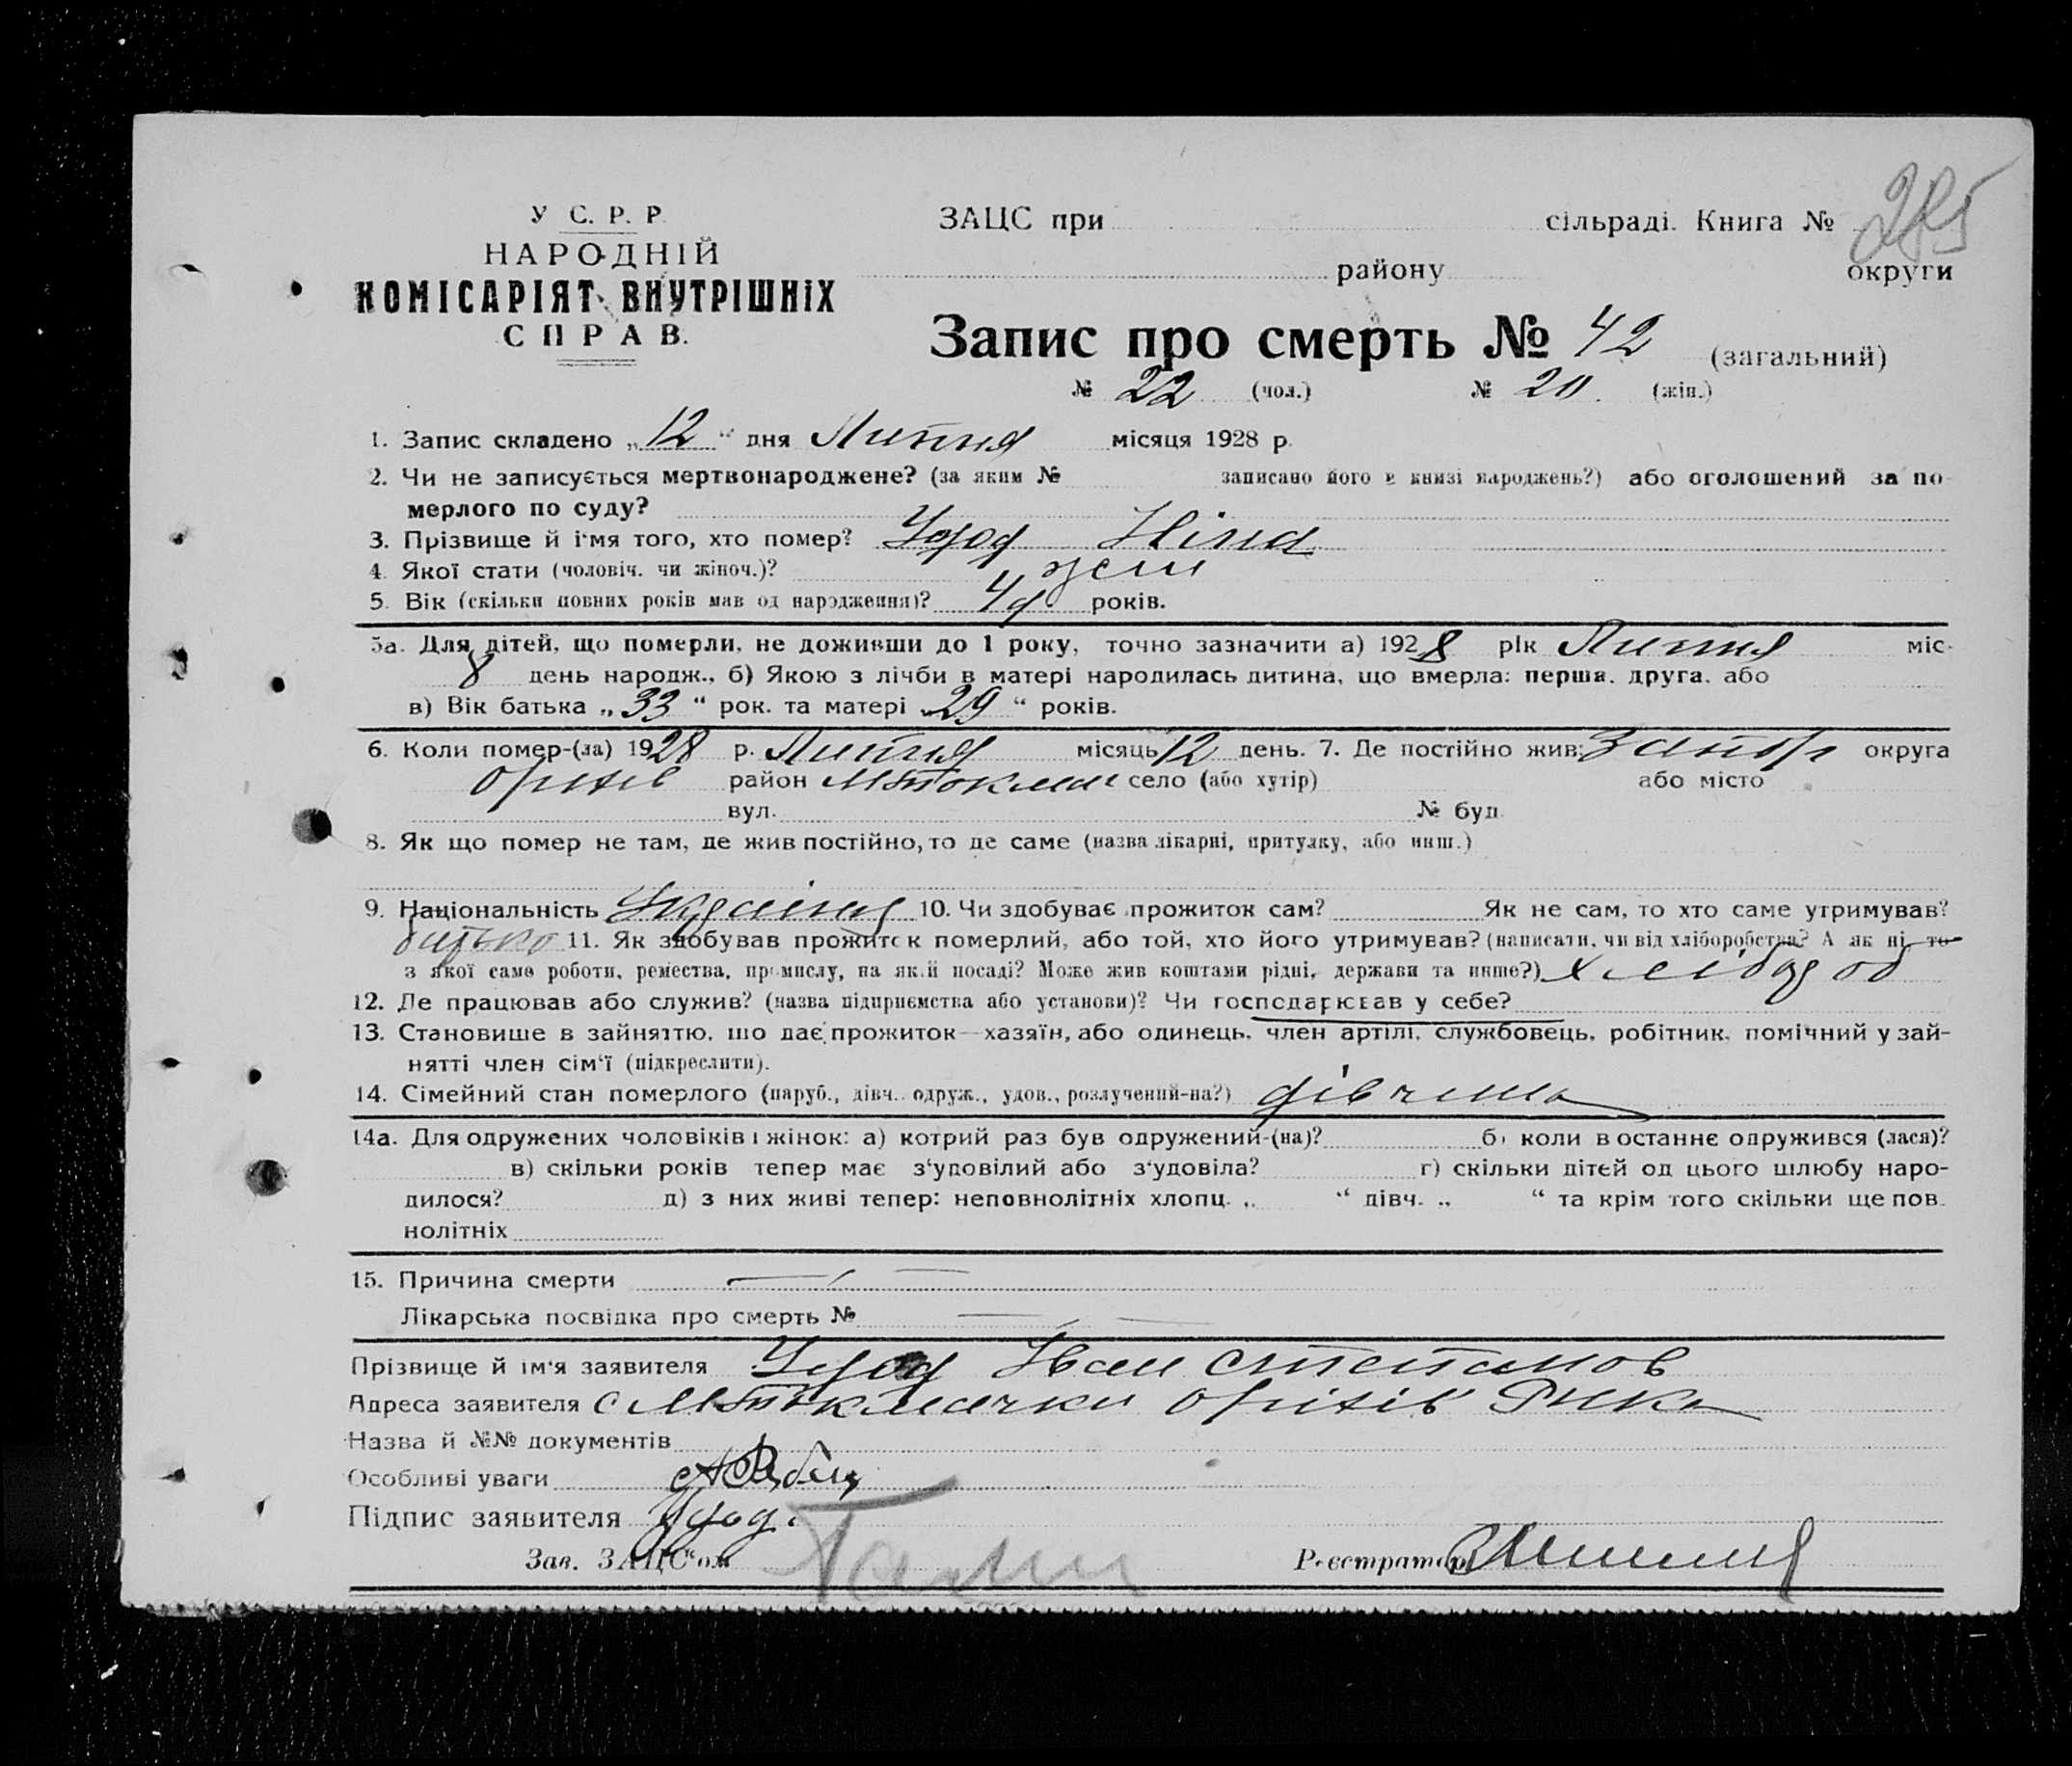 У С. Р. Р.
НАРОДНІЙ
КОМІСАРІЯТ ВНУТРІШНІХ
СПРАВ.
ЗАЦС при сільраді. Книга №
району округи
Запис про смерть № 42 (загальний)
№ 22 (чол.) № 20 (жін.)
1. Запис складено „12“ дня Липня місяця 1928 р.
2. Чи не записується мертвонароджене? (за яким № записано його в книзі народжень?) або оголошений за по-
мерлого по суду?
3. Прізвище й ім'я того, хто помер? Удод Ніна
4. Якої стати (чоловіч. чи жіноч.)? жен
5. Вік (скільки повних років мав од народження)? 4 д років.
5а. Для дітей, що померли, не доживши до 1 року, точно зазначити а) 1928 рік Липня міс.
8 день народж., б) Якою з лічби в матері народилась дитина, що вмерла: перша, друга, або
в) Вік батька „33“ рок. та матері „29“ років.
6. Коли помер-(ла) 1928 р. Липня місяць 12 день. 7. Де постійно жив: Запор округа
Оріхів район М Токмач село (або хутір) або місто
вул. № буд.
8. Як що помер не там, де жив постійно, то де саме (назва лікарні, притулку, або инш.)
9. Національність Україн 10. Чи здобуває прожиток сам? Як не сам, то хто саме утримував?
батько 11. Як здобував прожиток померлий, або той, хто його утримував? (написати, чи від хліборобства? А як ні, то
з якої саме роботи, ремества, промислу, на якій посаді? Може жив коштами рідні, держави та инше?) хлібороб
12. Де працював або служив? (назва підприємства або установи)? Чи господарював у себе?
13. Становище в зайняттю, що дає прожиток—хазяїн, або одинець, член артілі, службовець, робітник, помічний у зай-
нятті член сім'ї (підкреслити).
14. Сімейний стан померлого (паруб., дівч., одруж., удов., розлучений-на?) дівчина
14а. Для одружених чоловіків і жінок: а) котрий раз був одружений-(на)? б) коли в останнє одружився (лася)?
в) скільки років тепер має з'удовілий або з'удовіла? г) скільки дітей од цього шлюбу наро-
дилося? д) з них живі тепер: неповнолітніх хлопц. „ “ дівч. „ “ та крім того скільки ще пов.
нолітніх
15. Причина смерти —
Лікарська посвідка про смерть № —
Прізвище й ім'я заявителя Удод Иван Степанов
Адреса заявителя с М Токмачки Оріхів Рика
Назва й №№ документів
Особливі уваги
Підпис заявителя Удод.
Зав. ЗАЦС'ом
Реєстратор